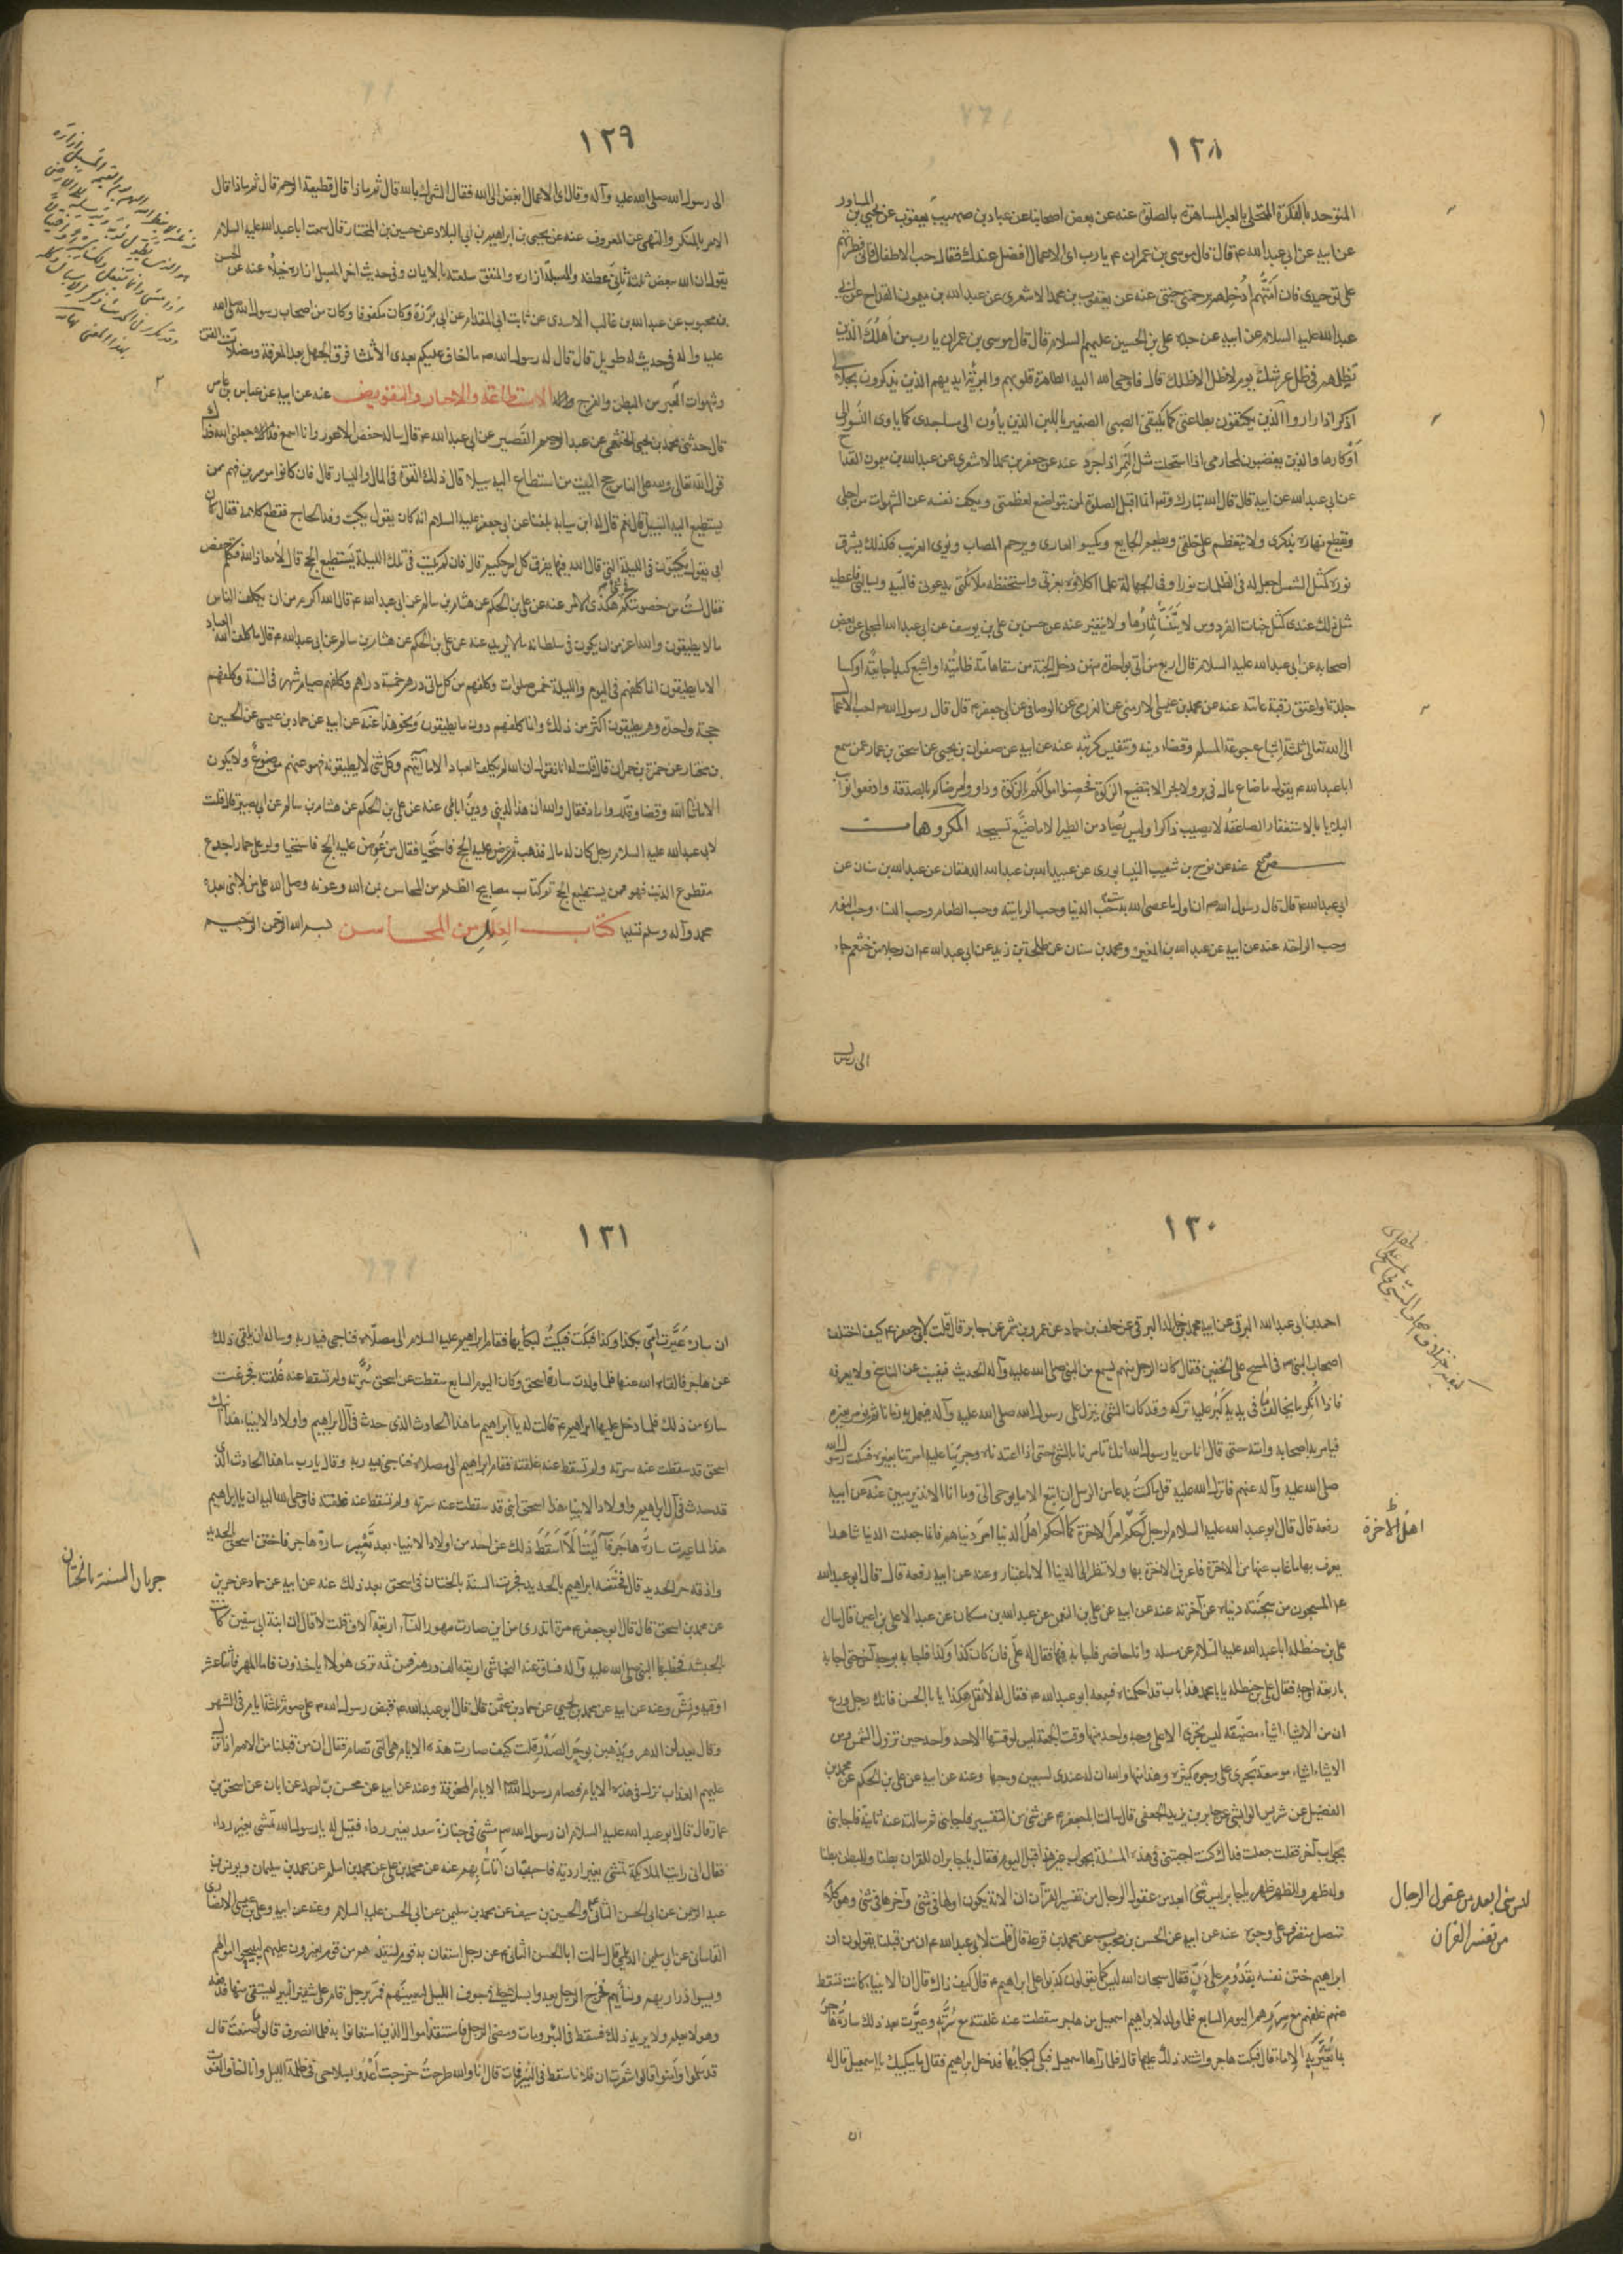 ١٢٨
المتوحد بالفكرة المتخلي بالعبر المساهرة بالصلوة عنه عن بعض اصحابنا عن عباد بن صهيب يعقوب عن يحيى بن المساور
عن ابيه عن ابي عبد الله ع قال قال موسى بن عمران ع يا رب اى الاعمال افضل عندك فقال حب الاطفال فانى فطرتهم
على توحيدى فان امتهم ادخلهم برحمتى جنتى عنه عن يعقوب بن محمد الاشعرى عن عبد الله بن ميمون القداح عن ابى
عبد الله عليه السلام عن ابيه عن جده على بن الحسين عليهم السلام قال قال موسى بن عمران يا رب من اهلك الذين
تظلهم فى ظل عرشك يوم لا ظل الا ظلك قال فاوحى الله اليه الطاهرة قلوبهم والبرئة ايديهم الذين يذكرون بجلالى
الذين يكتفون بطاعتى كما يكتفى الصبى الصغير باللبن الذين ياوون الى مساجدى كما ياوى النسور الى
اوكارها والذين يغضبون لمحارمى اذا استحلت مثل النمر اذا جرد عنه عن جعفر بن محمد الاشعرى عن عبد الله بن ميمون القداح
عن ابى عبد الله عن ابيه قال قال الله تبارك وتعالى انما اقبل الصلوة لمن يتواضع لعظمتى ويكف نفسه عن الشهوات من اجلى
ويقطع نهاره بذكرى ولا يتعظم على خلقى ويطعم الجايع ويكسو العارى ويرحم المصاب ويؤوى الغريب فكذلك يشرق
نوره كمثل الشمس اجعل له فى الظلمات نورا وفى الجهالة علما اكلاؤه بعزتى واستحفظه ملائكتى يدعونى فالبيه ويسالنى فاعطيه
مثل ذلك عندى كمثل جنات الفردوس لا يتسنا ثمارها ولا يتغير عنه عن حسن بن على بن يوسف عن ابى عبد الله البجلى عن بعض
اصحابه عن ابى عبد الله عليه السلام قال اربع من اتى بواحدة منهن دخل الجنة من سقا هامة ظامئة او اشبع كبدا جايعة او كسا
جلدة او اعتق رقبة عانية عنه عن محمد بن عيسى الارمنى عن العرزمى عن الوصافى عن ابى جعفر ع قال قال رسول الله ص احب الاعمال
الى الله تعالى ثلثة اشباع جوعة المسلم وقضاء دينه وتنفيس كربته عنه عن ابيه عن صفوان بن يحيى عن اسحق بن عمار عمن سمع
ابا عبد الله ع يقول ما ضاع مال فى بر ولا بحر الا بتضييع الزكوة فحصنوا اموالكم بالزكوة وداووا مرضاكم بالصدقة وادفعوا نوائب
البلايا بالاستغفار الصاعقة لا تصيب ذاكرا وليس يصاد من الطير الا ما ضيع تسبيحه المكروهات
عنه عن نوح بن شعيب النيسابورى عن عبيد الله بن عبد الله الدهقان عن عبد الله بن سنان عن
ابى عبد الله ع قال قال رسول الله ص ان اول ما عصى الله به ست حب الدنيا وحب الرياسة وحب الطعام وحب النساء وحب النوم
وحب الراحة عنه عن ابيه عن عبد الله بن المغيرة ومحمد بن سنان عن طلحة بن زيد عن ابى عبد الله ع ان رجلا من خثعم جاء
١٢٩
الى رسول الله صلى الله عليه وآله وقال اى الاعمال ابغض الى الله فقال الشرك بالله قال ثم ماذا قال قطيعة الرحم قال ثم ماذا قال
الامر بالمنكر والنهى عن المعروف عنه عن يحيى بن ابراهيم بن ابى البلاد عن حسين بن المختار قال سمعت ابا عبد الله عليه السلام
يقول ان الله يبغض ثلثة ثانى عطفه والمسبل ازاره والمنفق سلعته بالايمان وفى حديث اخر المسبل ازاره خيلاء عنه عن الحسن
بن محبوب عن عبد الله بن غالب الاسدى عن ثابت ابى المقدام عن ابى برزة وكان مكفوفا وكان من اصحاب رسول الله صلى الله
عليه وآله فى حديث له طويل قال قال له رسول الله ص ما اخاف عليكم بعدى الا ثلثا فرق الجهل بعد المعرفة ومضلات الفتن
وشهوات العبر من البطن والفرج الاستطاعة والاجبار والتفويض عنه عن ابيه عن عباس بن عامر
قال حدثنى محمد بن يحيى الخثعمى عن عبد الرحيم القصير عن ابى عبد الله ع قال ساله حفص الاعور وانا اسمع فقال جعلنى الله فداك
قول الله تعالى ولله على الناس حج البيت من استطاع اليه سبيلا قال ذلك القوة فى المال واليسار قال فان كانوا موسرين فهم ممن
يستطيع اليه السبيل قال نعم قال له ابن سيابة بلغنا عن ابى جعفر عليه السلام انه كان يقول يكتب وفد الحاج فقطع كلامه فقال كان
ابى يقول يكتبون فى الليلة التى قال الله فيها يفرق كل امر حكيم قال فان لم يكتب فى تلك الليلة يستطيع الحج قال لا معاذ الله فتكلم حفص
فقال لست من خصومتكم فى شىء هكذى الامر عنه عن على بن الحكم عن هشام بن سالم عن ابى عبد الله ع قال الله اكرم من ان يكلف الناس
ما لا يطيقون والله اعز من ان يكون فى سلطانه ما لا يريد عنه عن على بن الحكم عن هشام بن سالم عن ابى عبد الله ع قال ما كلف الله العباد
الا ما يطيقون انما كلفهم فى اليوم والليلة خمس صلوات وكلفهم من كل مائتى درهم خمسة دراهم وكلفهم صيام شهر فى السنة وكلفهم
حجة واحدة وهم يطيقون اكثر من ذلك وانما كلفهم دون ما يطيقون ونحو هذا عنه عن ابيه عن حماد بن عيسى عن الحسين
بن مختار عن حمزة بن حمران قال قلت له انا نقول ان الله لم يكلف العباد الا ما آتيهم وكل شىء لا يطيقونه فهو عنهم موضوع ولا يكون
الا ما شاء الله وقضا وقدر وارادة فقال والله ان هذا لدينى ودين آبائى عنه عن على بن الحكم عن هشام بن سالم عن ابى بصير قال قلت
لابى عبد الله عليه السلام رجل كان له مال فذهب ثم عرض عليه الحج فاستحيا فقال من عرض عليه الحج فاستحيا ولو على حمار اجدع
مقطوع الذنب فهو ممن يستطيع الحج تم كتاب مصابيح الظلم من المحاسن بمن الله وعونه وصلى الله على من لا نبى بعده
محمد وآله وسلم تسليما كتاب العلل من المحاسن بسم الله الرحمن الرحيم
١٣٠
احمد بن ابى عبد الله البرقى عن ابيه محمد بن خالد البرقى عن خلف بن حماد عن عمرو بن شمر عن جابر قال قلت لابى جعفر ع كيف اختلف
اصحاب النبى ص فى المسح على الخفين فقال كان الرجل منهم يسمع من النبى صلى الله عليه وآله الحديث فيغيب عن الناسخ ولا يعرفه
فاذا انكر ما يخالف ما فى يديه كبر عليه تركه وقد كان الشىء ينزل على رسول الله صلى الله عليه وآله فيعمل به زمانا ثم يؤمر بغيره
فيامر به اصحابه وامته حتى قال اناس يا رسول الله انك تامرنا بالشىء حتى اذا اعتدناه وجرينا عليه امرتنا بغيره فسكت رسول الله
صلى الله عليه وآله عنهم فانزل الله عليه قل ما كنت بدعا من الرسل ان اتبع الا ما يوحى الى وما انا الا نذير مبين عنه عن ابيه
رفعه قال قال ابو عبد الله عليه السلام لرجل احكم امر الاخرة كما احكم اهل الدنيا امر دنياهم فانما جعلت الدنيا شاهدا
يعرف بها ما غاب عنها من الاخرة فاعرف الاخرة بها ولا تنظر الى الدنيا الا لاعتبار وعنه عن ابيه رفعه قال قال ابو عبد الله
ع المسجون من سجنته دنياه عن آخرته عنه عن ابيه عن على بن النعمن عن عبد الله بن مسكان عن عبد الاعلى بن اعين قال سال
على بن حنظلة ابا عبد الله عليه السلام عن مسئلة وانا حاضر فاجابه فيها فقال له على فان كان كذا وكذا فاجابه بوجه آخر حتى اجابه
باربعة اوجه فقال على بن حنظلة يا با محمد هذا باب قد احكمناه فسمعه ابو عبد الله ع فقال له لا تقل هكذا يا با الحسن فانك رجل ورع
ان من الاشياء اشياء مضيقة ليس يجرى الا على وجه واحد منها وقت الجمعة ليس لوقتها الا حد واحد حين تزول الشمس ومن
الاشياء اشياء موسعة يجرى على وجوه كثيرة وهذا منها والله ان له عندى لسبعين وجها وعنه عن ابيه عن على بن الحكم عن محمد بن
الفضيل عن شريس الوابشى عن جابر بن يزيد الجعفى قال سالت ابا جعفر ع عن شىء من التفسير فاجابنى ثم سالته عنه ثانية فاجابنى
بجواب آخر فقلت جعلت فداك كنت اجبتنى فى هذه المسئلة بجواب غير هذا قبل اليوم فقال يا جابر ان للقران بطنا وللبطن بطنا
وله ظهر وللظهر ظهر يا جابر ليس شىء ابعد من عقول الرجال من تفسير القرآن ان الاية يكون اولها فى شىء وآخرها فى شىء وهو كلام
متصل متصرف على وجوه عنه عن ابيه عن الحسن بن محبوب عن محمد بن قزعة قال قلت لابى عبد الله ع ان من قبلنا يقولون ان
ابراهيم ختن نفسه بقدوم على دن فقال سبحان الله ليس كما يقولون كذبوا على ابراهيم ع قال كيف ذاك قال ان الانبياء كانت تسقط
عنهم غلفهم مع سررهم اليوم السابع فلما ولد لابراهيم اسمعيل من هاجر سقطت عنه غلفته مع سرته وعيرت بعد ذلك سارة هاجر
بما تعير به الاماء قال فبكت هاجر واشتد ذلك عليها قال فلما رآها اسمعيل تبكى بكى لبكائها فدخل ابراهيم فقال ما يبكيك يا اسمعيل قال له
ان
اهل الاخرة
ليس شىء ابعد من عقول الرجال
من تفسير القران
١٣١
ان سارة عيرت امى بكذا وكذا فبكت فبكيت لبكائها فقام ابراهيم عليه السلام الى مصلاه فناجى فيه ربه وساله ان يلقى ذلك
عن هاجر فالقاه الله عنها فلما ولدت سارة اسحق وكان اليوم السابع سقطت عن اسحق سرته ولم تسقط عنه غلفته فجزعت
سارة من ذلك فلما دخل عليها ابراهيم ع قالت له يا ابراهيم ما هذا الحادث الذى حدث فى آل ابراهيم واولاد الانبياء هذا ابنك
اسحق قد سقطت عنه سرته ولم تسقط عنه غلفته فقام ابراهيم الى مصلاه فناجى فيه ربه وقال يا رب ما هذا الحادث الذى
قد حدث فى آل ابراهيم واولاد الانبياء هذا اسحق ابنى قد سقطت عنه سرته ولم تسقط عنه غلفته فاوحى الله اليه ان يا ابراهيم
هذا لما عيرت سارة هاجر فآليت الا اسقط ذلك عن احد من اولاد الانبياء بعد تعيير سارة هاجر فاختن اسحق بالحديد
واذقه حر الحديد قال فختنه ابراهيم بالحديد فجرت السنة بالختان فى اسحق بعد ذلك عنه عن ابيه عن حماد عن حريز
عن محمد بن اسحق قال قال ابو جعفر ع مرة اتدرى من اين صارت مهور النساء اربعة آلاف قلت لا قال ان ابنة ابى سفين كانت
بالحبشة فخطبها النبى صلى الله عليه وآله فساق عنه النجاشى اربعة الف درهم فمن ثمة ترى هولاء ياخذون فاما المهر فاثنا عشر
اوقية ونش وعنه عن ابيه عن محمد بن يحيى عن حماد بن عثمن قال قال ابو عبد الله ع قبض رسول الله ص على صوم ثلثة ايام فى الشهر
وقال يعدلن الدهر ويذهبن بوحر الصدر قلت كيف صارت هذه الايام هى التى تصام فقال ان من قبلنا من الامم اذا نزل
عليهم العذاب نزل فى هذه الايام فصام رسول الله ص الايام المخوفة وعنه عن ابيه عن محسن بن احمد عن ابان عن اسحق بن
عمار قال قال ابو عبد الله عليه السلام ان رسول الله ص مشى فى جنازة سعد بغير رداء فقيل له يا رسول الله تمشى بغير رداء
فقال انى رايت الملائكة تمشى بغير اردية فاحببت ان اتاسى بهم عنه عن محمد بن على عن محمد بن اسلم عن محمد بن سليمان ويونس بن
عبد الرحمن عن ابى الحسن الثانى ع والحسين بن سيف عن محمد بن سليمن عن ابى الحسن عليه السلام وعنه عن ابيه وعلى بن عيسى الانصارى
القاسانى عن ابى سليمن الديلمى قال سالت ابا الحسن الثانى ع عن رجل استغاث به قوم لينقذهم من قوم يغيرون عليهم ليبيحوا اموالهم
ويسبوا ذراريهم ونساءهم فخرج الرجل يعدو بسلاحه فى جوف الليل ليغيثهم فمر برجل قائم على شفير البئر ليستقى منها فدفعه
وهو لا يعلم ولا يريد ذلك فسقط فى البئر ومات ومضى الرجل فاستنقذ اموال الذين استغاثوا به فلما انصرف قالوا ما صنعت قال
قد سلموا وامنوا قالوا اشعرت ان فلانا سقط فى البئر فمات قال انا والله طرحته خرجت اعدو بسلاحى فى ظلمة الليل وانا اخاف الفوت
جريان السنة بالختان